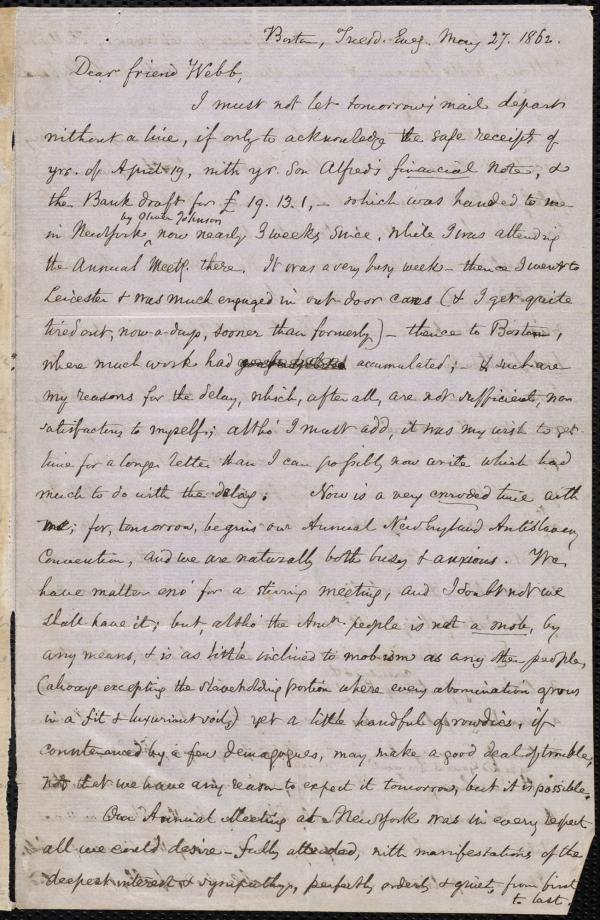 Boston, Tuesd. Eveg. May 27. 1862.
Dear friend Webb,
I must not let tomorrow's mail depart
without a line, if only to acknowledge the safe receipt of
yrs. of April 19, with yr. Son Alfred's financial Note, &
the Bank draft for £ 19. 13. 1, – which was handed to me
by Oliver Johnson
in New York now nearly 3 weeks since, while I was attending
the Annual Meetg. there. It was a very busy week – thence I went to
Leicester & was much engaged in out-door cares (& I get quite
tired out, now-a-days, sooner than formerly) – thence to Boston,
where much work had accumulated; – & such are
my reasons for the delay, which, after all, are not sufficient, nor
satisfactory to myself; altho' I must add, it was my wish to get
time for a longer letter than I can possibly now write which had
much to do with the delay. Now is a very crowded time with
me; for, tomorrow, begins our Annual New England Antislavery
Convention, and we are naturally both busy & anxious. We
have matter eno' for a stirring meeting, and I doubt not we
shall have it; but, altho' the Amn. people is not a mob, by
any means, & is as little inclined to mobism as any other people,
(always excepting the slaveholding portion where every abomination grows
in a fit & luxuriant soil,) yet a little handful of rowdies, if
countenanced by a few demagogues, may make a good deal of trouble;
not that we have any reason to expect it tomorrow, but it is possible.
Our Annual Meeting at New York was in every respect
all we could desire – fully attended, with manifestations of the
deepest interest & sympathy, perfectly orderly & quiet, from first
to last.